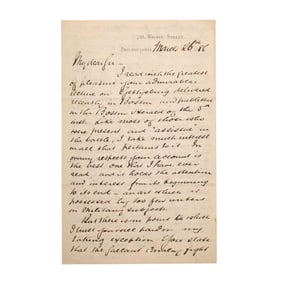 Walnut Street,
Philadelphia, March 26th 86
My dear Sir -
I read with the greatest
of pleasure your admirable
lecture on Gettysburg delivered
recently in Boston and published
in the Boston Herald of the
inst. Like most of those who
were present and assisted in
the battle, I take much interest
in all that pertains to it. In
many respects your account is
the best one that I have ever
read, and it holds the attention
and interest from its beginning
to its end - an art which is
possessed by too few writers
on Military subjects.
But there is one point to which
I must you will pardon my
taking exception. You state
that the gallant Cavalry fight